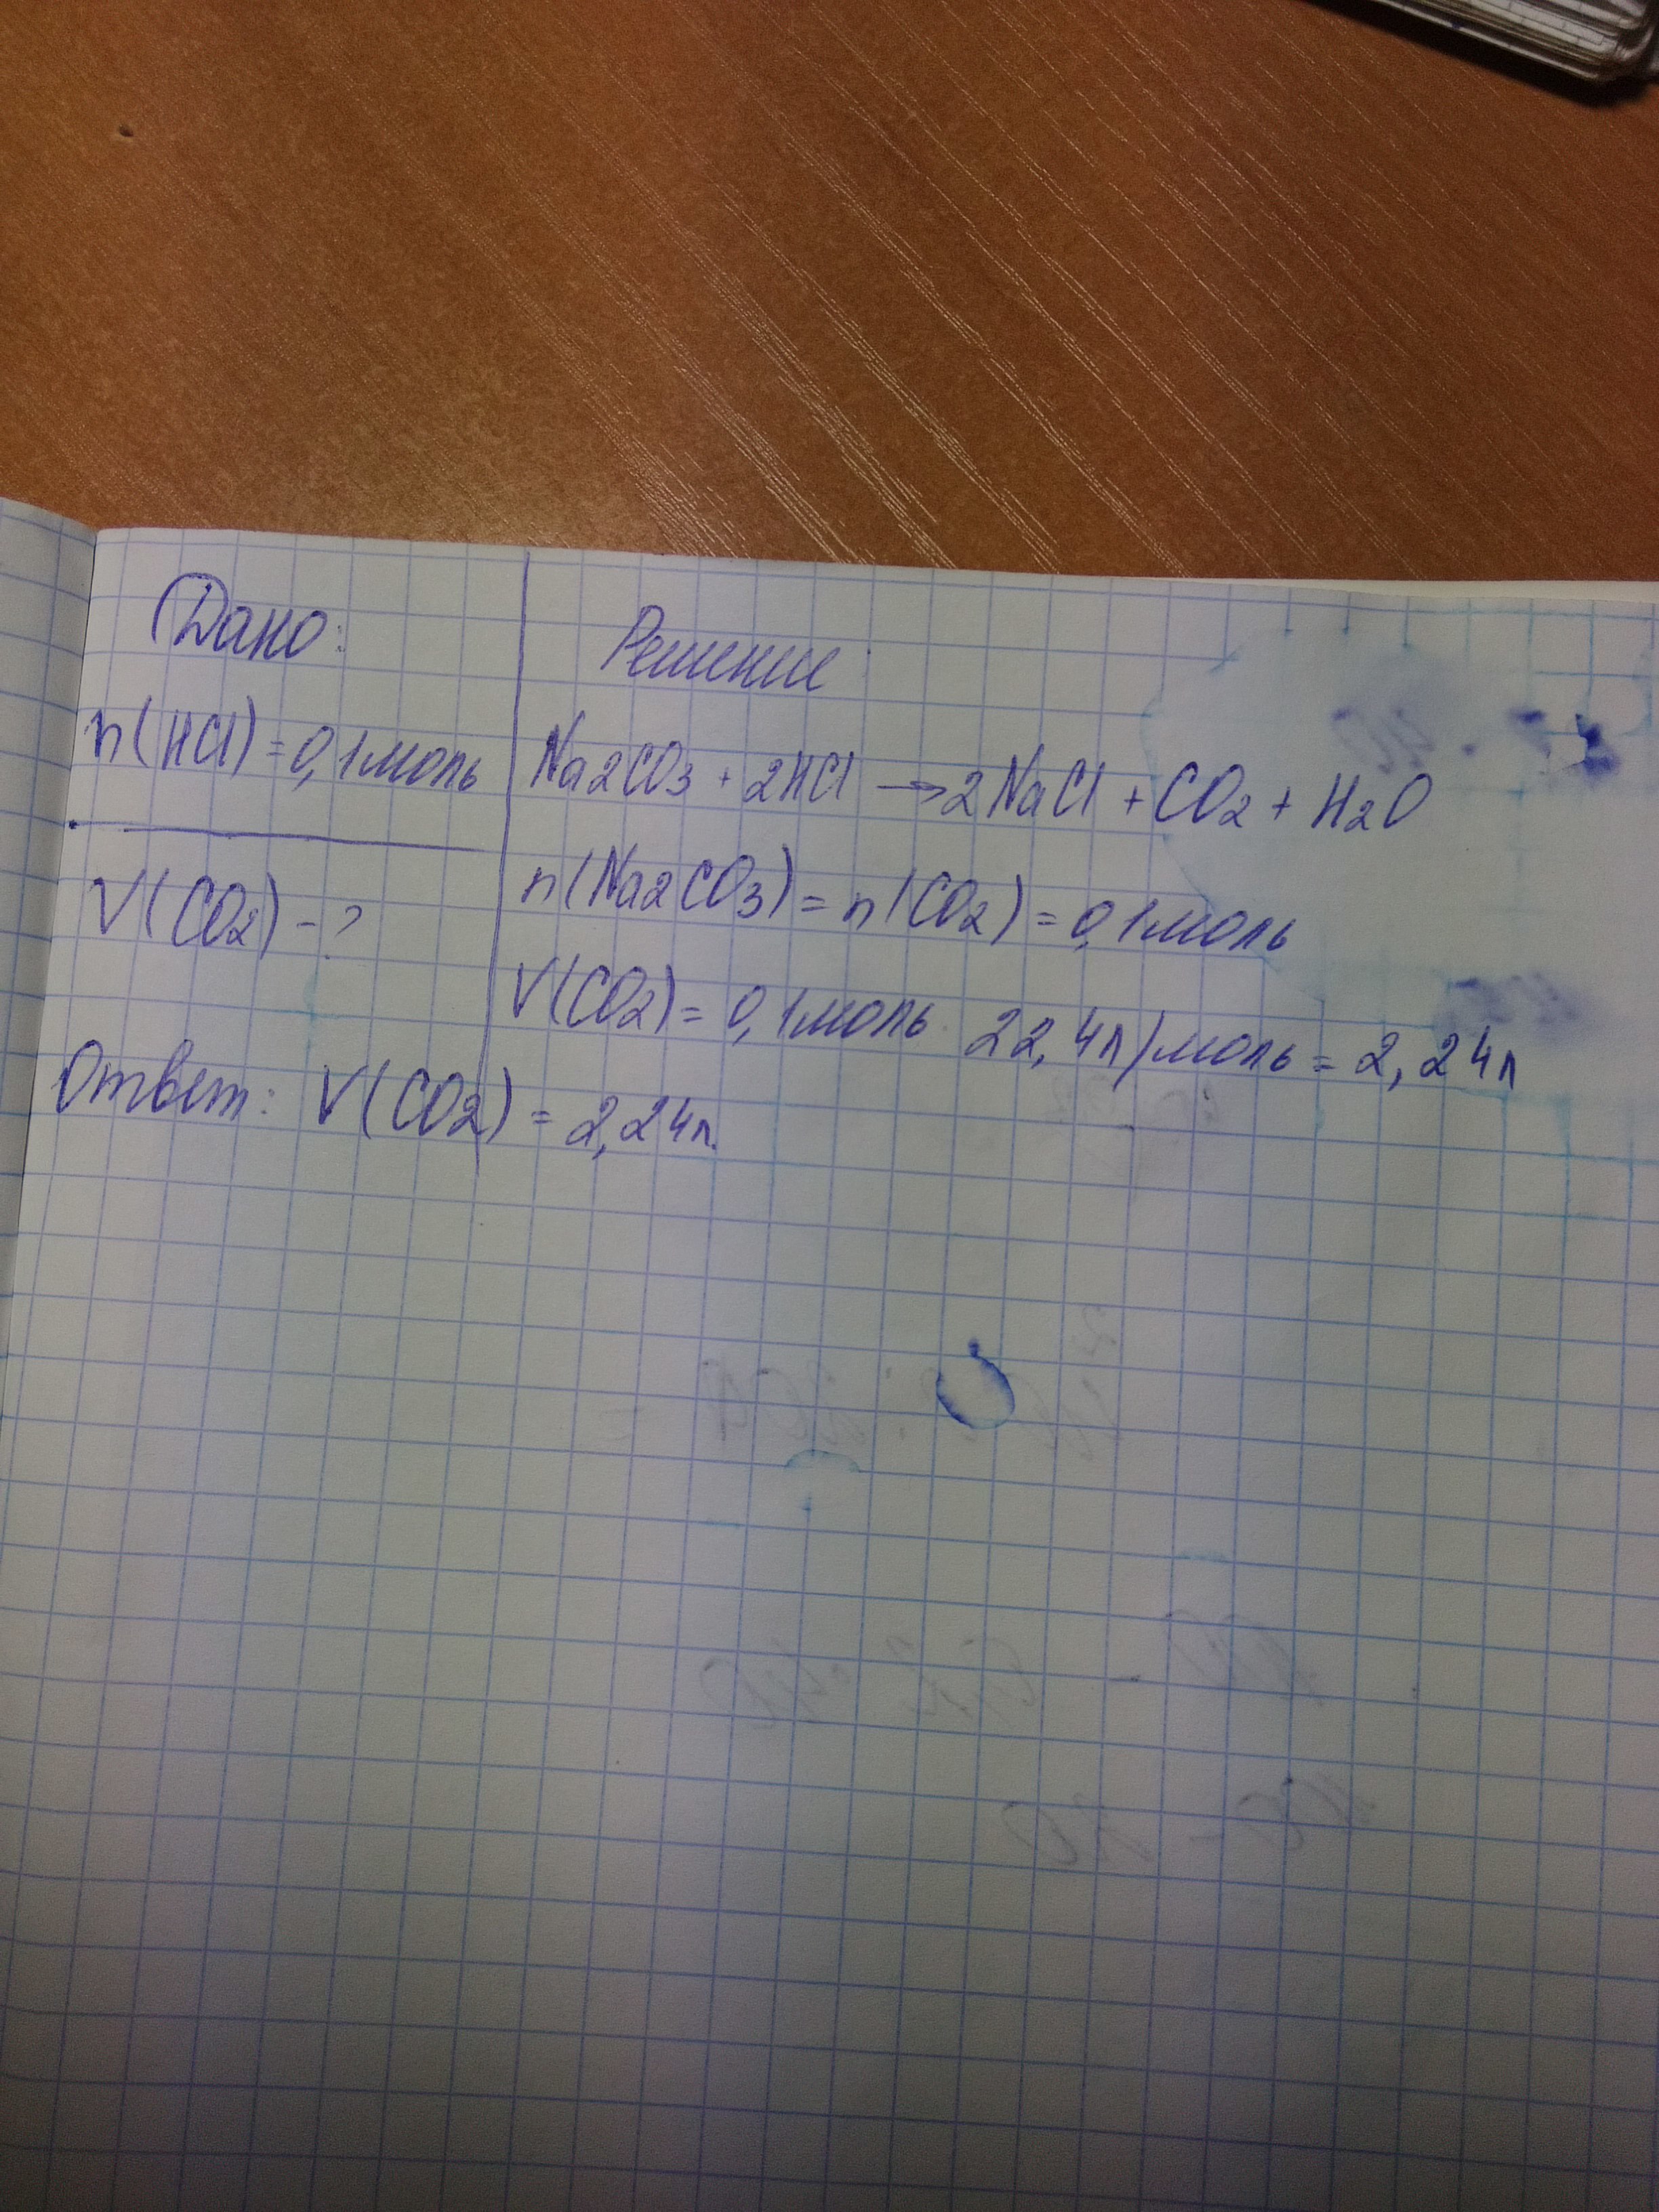 Дано:
n(HCl) = 0,1моль
V(CO2) - ?
Решение
Na2CO3 + 2HCl → 2NaCl + CO2 + H2O
n(Na2CO3) = n(CO2) = 0,1моль
V(CO2) = 0,1моль 22,4л/моль = 2,24л
Ответ: V(CO2) = 2,24л.